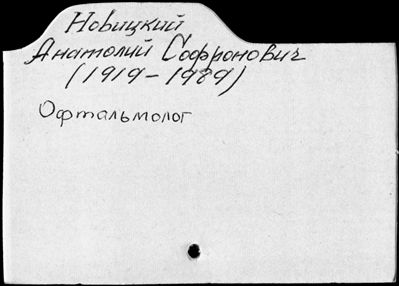 Новицкий
Анатолий Софронович
(1919-1989)
Офтальмолог